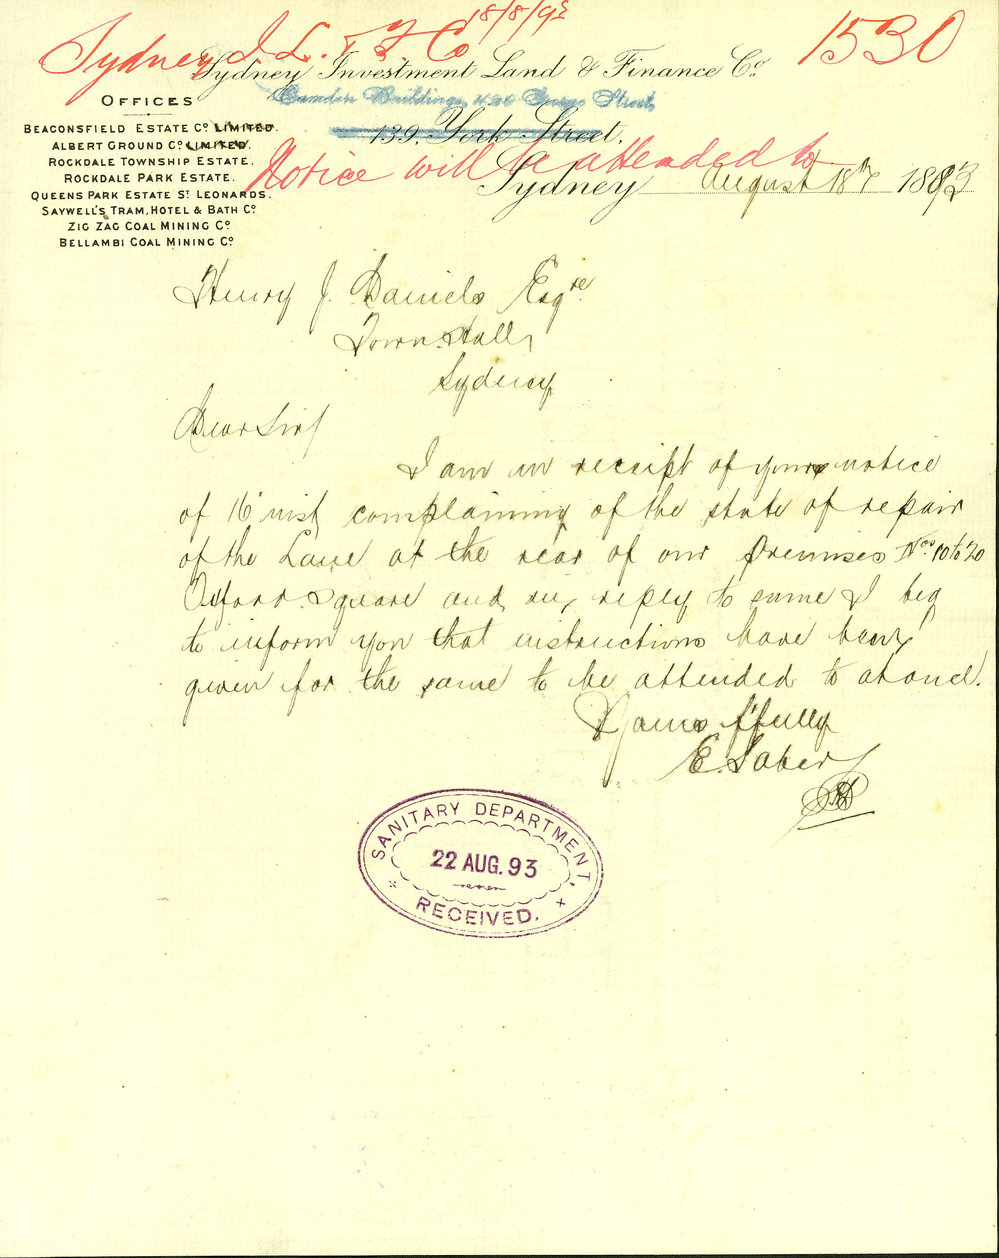 18/8/93
Sydney I. L. & F Co 1530
Sydney Investment Land & Finance Co.
Camden Buildings, 420 George Street,
139, York Street,
Notice will be attended to
Sydney August 18th 1893
OFFICES
BEACONSFIELD ESTATE Co. LIMITED.
ALBERT GROUND Co. LIMITED.
ROCKDALE TOWNSHIP ESTATE.
ROCKDALE PARK ESTATE.
QUEENS PARK ESTATE ST LEONARDS.
SAYWELL'S TRAM, HOTEL & BATH Co.
ZIG ZAG COAL MINING Co.
BELLAMBI COAL MINING Co.
Henry J. Daniels Esqre.
Town Hall,
Sydney
Dear Sir/
I am in receipt of your notice
of 16 inst complaining of the state of repair
of the Lane at the rear of our premises Nos 10 to 20
Oxford Square and in reply to same I beg
to inform you that instructions have been
given for the same to be attended to at once.
Yours f'fully
E. Saber
SANITARY DEPARTMENT,
22 AUG. 93
RECEIVED.